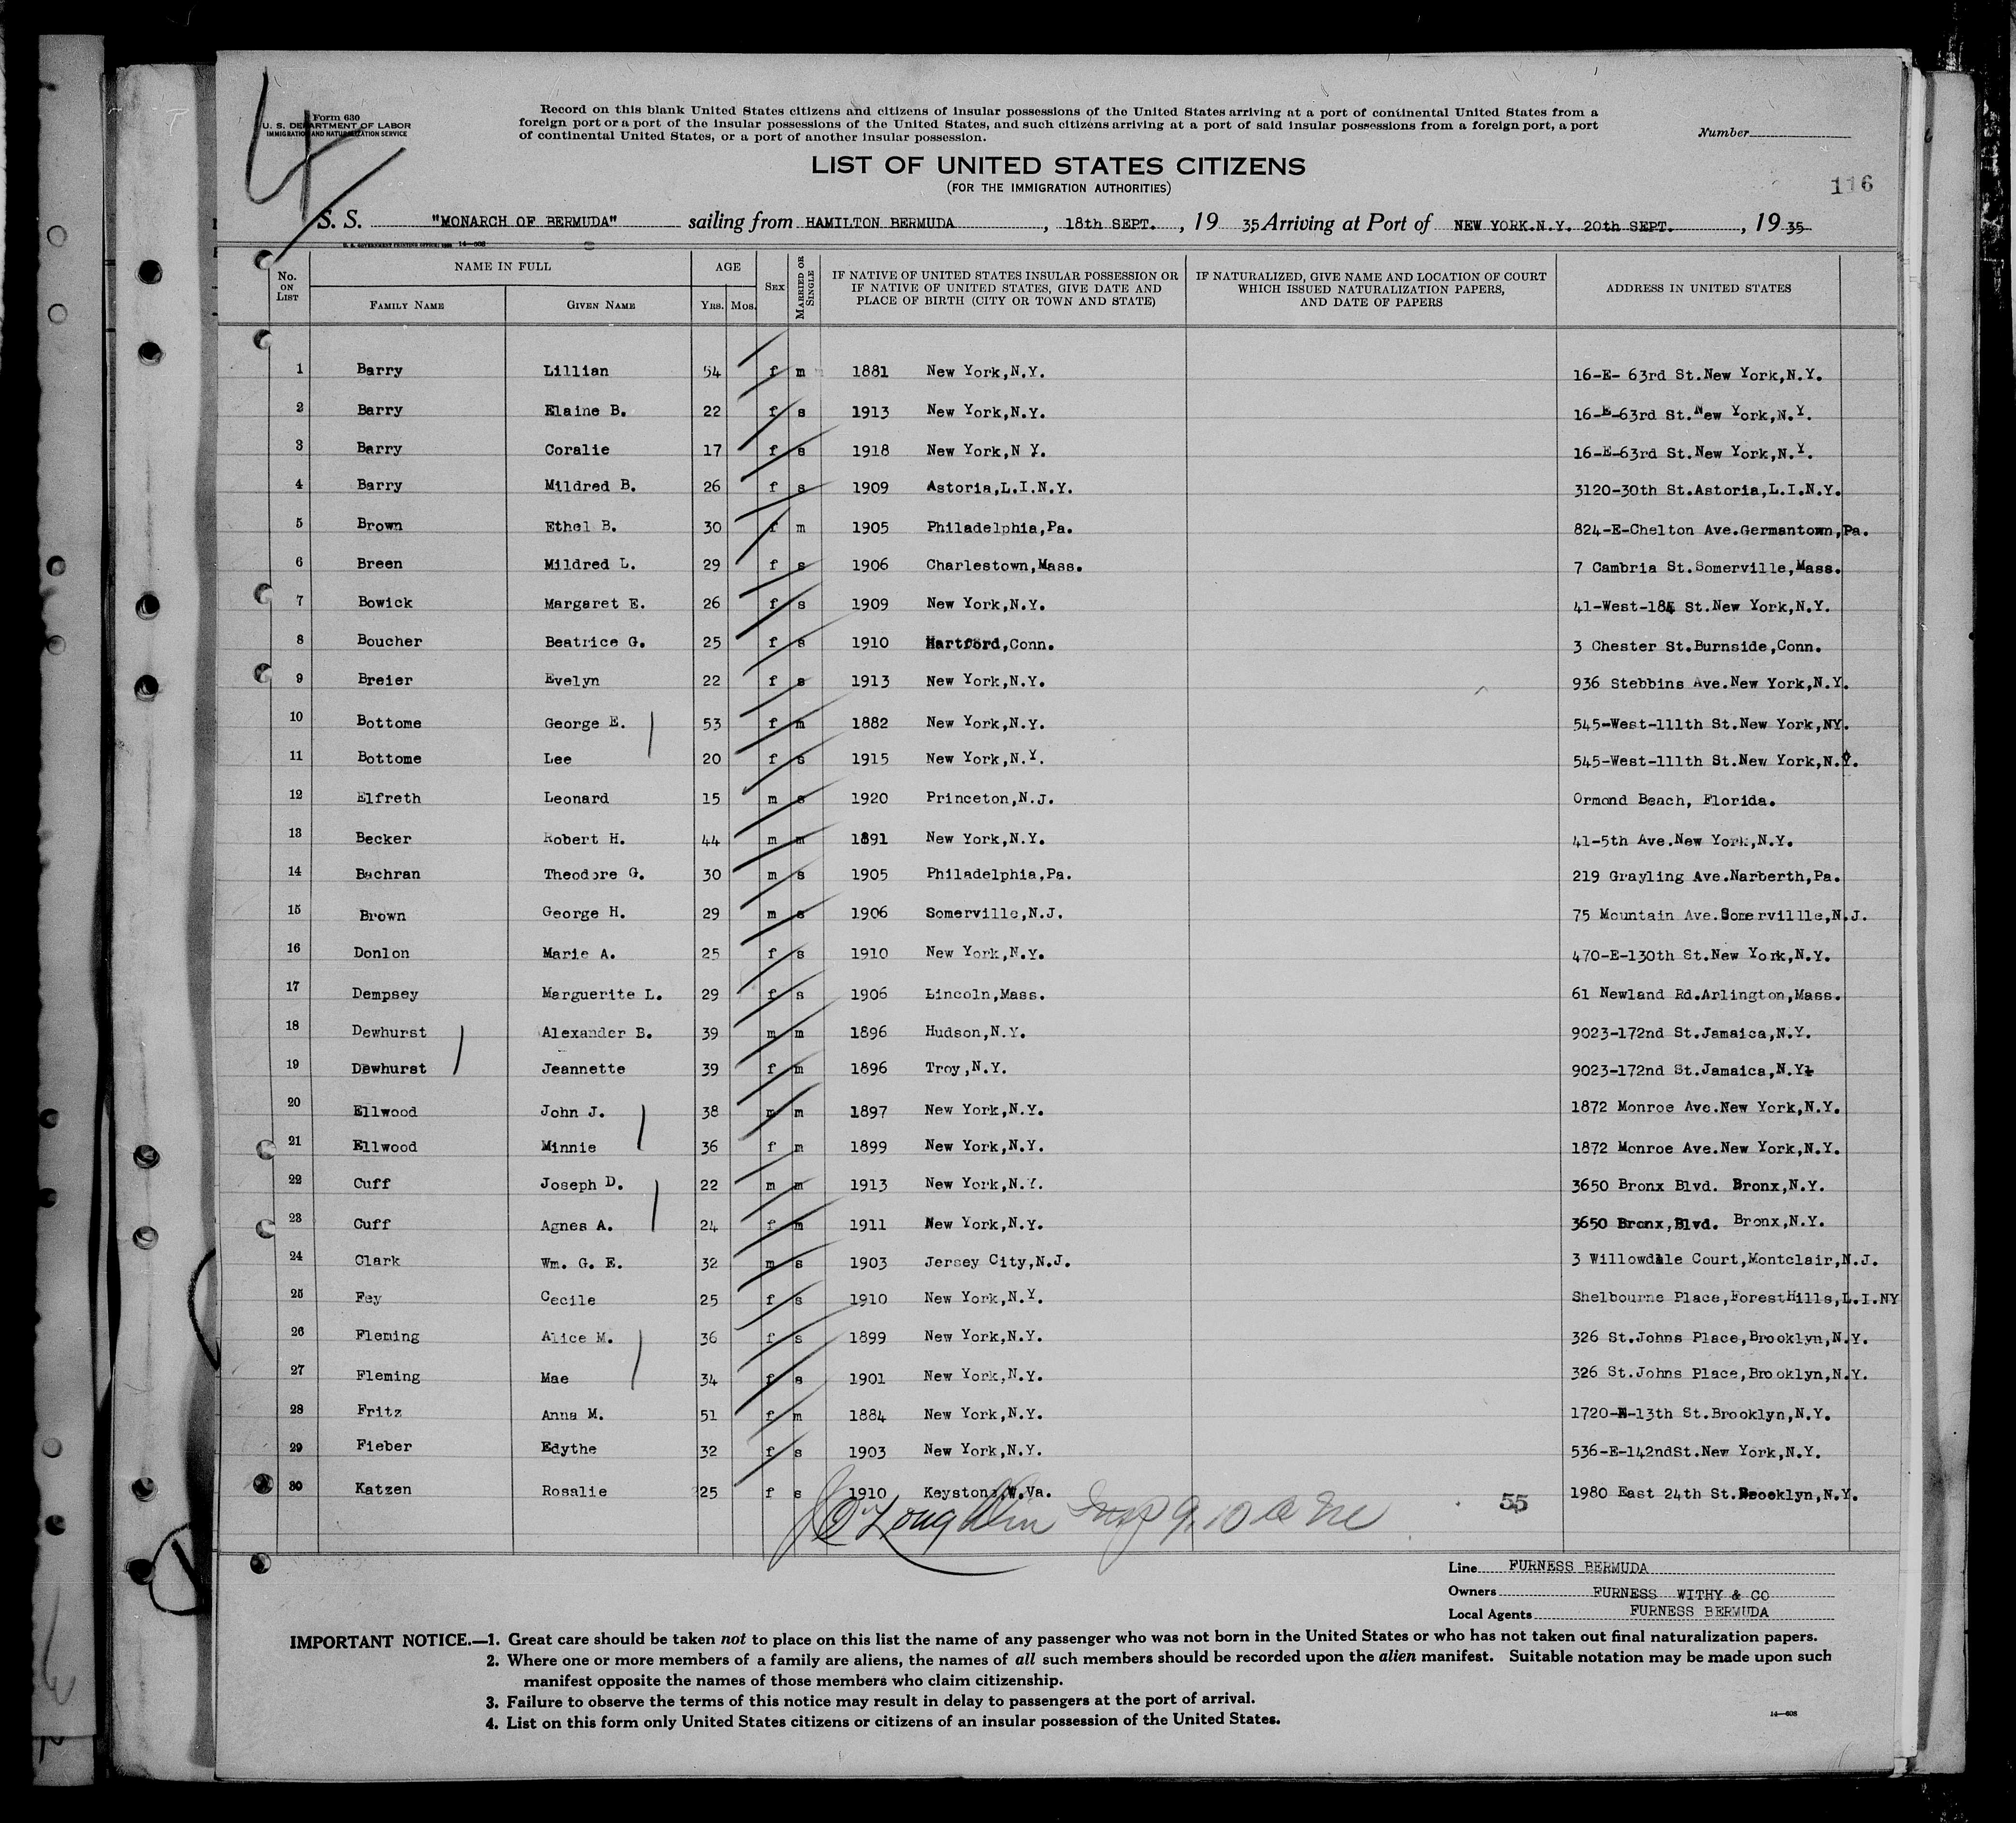 4
Form 630
U. S. DEPARTMENT OF LABOR
IMMIGRATION AND NATURALIZATION SERVICE
Record on this blank United States citizens and citizens of insular possessions of the United States arriving at a port of continental United States from a
foreign port or a port of the insular possessions of the United States, and such citizens arriving at a port of said insular possessions from a foreign port, a port
of continental United States, or a port of another insular possession.
Number
LIST OF UNITED STATES CITIZENS
(FOR THE IMMIGRATION AUTHORITIES)
116
S. S. "MONARCH OF BERMUDA" sailing from HAMILTON BERMUDA, 18th SEPT., 19 35, Arriving at Port of NEW YORK.N.Y. 20th SEPT., 19 35
U. S. GOVERNMENT PRINTING OFFICE: 14—608
No. ON LIST NAME IN FULL FAMILY NAME GIVEN NAME AGE YRS. MOS. SEX MARRIED OR SINGLE IF NATIVE OF UNITED STATES INSULAR POSSESSION OR IF NATIVE OF UNITED STATES, GIVE DATE AND PLACE OF BIRTH (CITY OR TOWN AND STATE) IF NATURALIZED, GIVE NAME AND LOCATION OF COURT WHICH ISSUED NATURALIZATION PAPERS, AND DATE OF PAPERS ADDRESS IN UNITED STATES
1 Barry Lillian 54 f m 1881 New York,N.Y. 16-E- 63rd St.New York,N.Y.
2 Barry Elaine B. 22 f s 1913 New York,N.Y. 16-E-63rd St.New York,N.Y.
3 Barry Coralie 17 f s 1918 New York,N Y. 16-E-63rd St.New York,N.Y.
4 Barry Mildred B. 26 f s 1909 Astoria,L.I.N.Y. 3120-30th St.Astoria,L.I.N.Y.
5 Brown Ethel B. 30 f m 1905 Philadelphia,Pa. 824-E-Chelton Ave.Germantown,Pa.
6 Breen Mildred L. 29 f s 1906 Charlestown,Mass. 7 Cambria St.Somerville,Mass.
7 Bowick Margaret E. 26 f s 1909 New York,N.Y. 41-West-184 St.New York,N.Y.
8 Boucher Beatrice G. 25 f s 1910 Hartford,Conn. 3 Chester St.Burnside,Conn.
9 Breier Evelyn 22 f s 1913 New York,N.Y. 936 Stebbins Ave.New York,N.Y.
10 Bottome George E. 53 f m 1882 New York,N.Y. 545-West-111th St.New York,NY.
11 Bottome Lee 20 f s 1915 New York,N.Y. 545-West-111th St.New York,N.Y.
12 Elfreth Leonard 15 m s 1920 Princeton,N.J. Ormond Beach, Florida.
13 Becker Robert H. 44 m m 1891 New York,N.Y. 41-5th Ave.New York,N.Y.
14 Bachran Theodore G. 30 m s 1905 Philadelphia,Pa. 219 Grayling Ave.Narberth,Pa.
15 Brown George H. 29 m s 1906 Somerville,N.J. 75 Mountain Ave.Somervillle,N.J.
16 Donlon Marie A. 25 f s 1910 New York,N.Y. 470-E-130th St.New York,N.Y.
17 Dempsey Marguerite L. 29 f s 1906 Lincoln,Mass. 61 Newland Rd.Arlington,Mass.
18 Dewhurst Alexander B. 39 m m 1896 Hudson,N.Y. 9023-172nd St.Jamaica,N.Y.
19 Dewhurst Jeannette 39 f m 1896 Troy,N.Y. 9023-172nd St.Jamaica,N.Y.
20 Ellwood John J. 38 m m 1897 New York,N.Y. 1872 Monroe Ave.New York,N.Y.
21 Ellwood Minnie 36 f m 1899 New York,N.Y. 1872 Monroe Ave.New York,N.Y.
22 Cuff Joseph D. 22 m m 1913 New York,N.Y. 3650 Bronx Blvd. Bronx,N.Y.
23 Cuff Agnes A. 24 f m 1911 New York,N.Y. 3650 Bronx,Blvd. Bronx,N.Y.
24 Clark Wm. G. E. 32 m s 1903 Jersey City,N.J. 3 Willowdale Court,Montclair,N.J.
25 Fey Cecile 25 f s 1910 New York,N.Y. Shelbourne Place,ForestHills,L.I.NY
26 Fleming Alice M. 36 f s 1899 New York,N.Y. 326 St.Johns Place,Brooklyn,N.Y.
27 Fleming Mae 34 f s 1901 New York,N.Y. 326 St.Johns Place,Brooklyn,N.Y.
28 Fritz Anna M. 51 f m 1884 New York,N.Y. 1720-N-13th St.Brooklyn,N.Y.
29 Fieber Edythe 32 f s 1903 New York,N.Y. 536-E-142ndSt.New York,N.Y.
30 Katzen Rosalie 25 f s 1910 Keystone,W.Va. 1980 East 24th St.Brooklyn,N.Y.
O'Loughlin Insp 9.10
55
Line FURNESS BERMUDA
Owners FURNESS WITHY & CO
Local Agents FURNESS BERMUDA
IMPORTANT NOTICE.—1. Great care should be taken not to place on this list the name of any passenger who was not born in the United States or who has not taken out final naturalization papers.
2. Where one or more members of a family are aliens, the names of all such members should be recorded upon the alien manifest. Suitable notation may be made upon such
manifest opposite the names of those members who claim citizenship.
3. Failure to observe the terms of this notice may result in delay to passengers at the port of arrival.
4. List on this form only United States citizens or citizens of an insular possession of the United States.
14—608